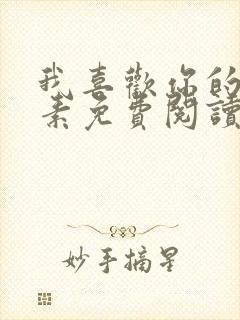 我喜歡你的
素免費閱讀
妙手摘星